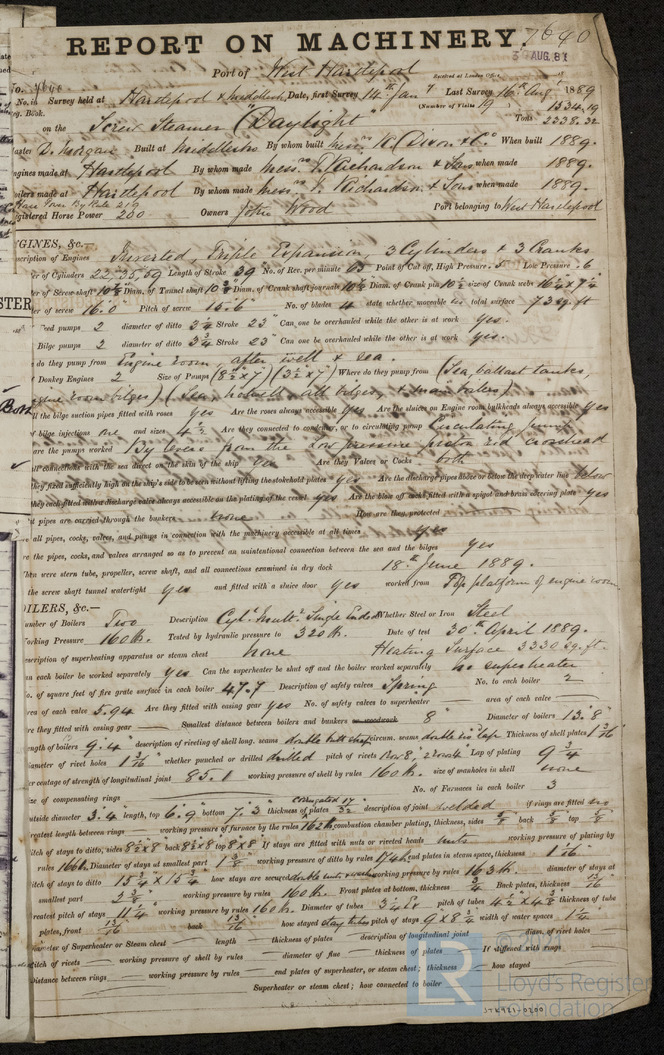 REPORT ON MACHINERY. 7640
Port of West Hartlepool Received at London Office
30 AUG. 81
No. 7640
No. in Survey held at Hartlepool & Middlesbro, Date, first Survey 14th Jany Last Survey 16th Aug 1889
Reg. Book. (Number of Visits 19) 1534.19
on the Screw Steamer "Daylight" Tons 2338.32
Master D. Morgan Built at Middlesbro By whom built Messrs. R. Dixon & Co. When built 1889.
Engines made at Hartlepool By whom made Messrs. T. Richardson & Sons when made 1889.
Boilers made at Hartlepool By whom made Messrs. T. Richardson & Sons when made 1889.
Horse Power By Rule 219
Registered Horse Power 200 Owners John Wood Port belonging to West Hartlepool
ENGINES, &c.—
Description of Engines Inverted, Triple Expansion, 3 Cylinders & 3 Cranks
Diameter of Cylinders 22, 35, 59 Length of Stroke 39" No. of Rev. per minute 65 Point of Cut off, High Pressure .5 Low Pressure .6
Diameter of Screw shaft Diam. of Tunnel shaft Diam. of Crank shaft journals Diam. of Crank pin size of Crank webs
Diameter of screw 16.0 Pitch of screw 15.6 No. of blades 4 state whether moveable no total surface 73 sq. ft
Feed pumps 2 diameter of ditto 3¾ Stroke 23" Can one be overhauled while the other is at work yes.
Bilge pumps 2 diameter of ditto 3¾ Stroke 23" Can one be overhauled while the other is at work yes.
do they pump from Engine room, after well & sea.
Donkey Engines 2 Size of Pumps (8½ x 7) (3½ x 7) Where do they pump from (Sea, ballast tanks,
engine room bilges) (Sea, hotwell, all bilges, & main boilers)
all the bilge suction pipes fitted with roses yes Are the roses always accessible yes Are the sluices on Engine room bulkheads always accessible yes
of bilge injections one and sizes 4½ Are they connected to condenser, or to circulating pump Circulating pump
are the pumps worked By levers from the low pressure piston rod crosshead
all connections with the sea direct on the skin of the ship yes Are they Valves or Cocks both
they fixed sufficiently high on the ship's side to be seen without lifting the stokehold plates yes Are the discharge pipes above or below the deep water line below
they each fitted with a discharge valve always accessible on the plating of the vessel yes Are the blow off cocks fitted with a spigot and brass covering plate yes
pipes are carried through the bunkers none How are they protected
all pipes, cocks, valves, and pumps in connection with the machinery accessible at all times yes
the pipes, cocks, and valves arranged so as to prevent an unintentional connection between the sea and the bilges yes
When were stern tube, propeller, screw shaft, and all connections examined in dry dock 18th June 1889.
the screw shaft tunnel watertight yes and fitted with a sluice door yes worked from Top platform of engine room
BOILERS, &c.—
Number of Boilers Two Description Cyl. Mult. Single Ended Whether Steel or Iron Steel
Working Pressure 160 lb. Tested by hydraulic pressure to 320 lb. Date of test 30th April 1889.
Description of superheating apparatus or steam chest none Heating Surface 3330 sq. ft.
Can each boiler be worked separately yes Can the superheater be shut off and the boiler worked separately no superheater
No. of square feet of fire grate surface in each boiler 47.7 Description of safety valves Spring No. to each boiler 2
Area of each valve 5.94 Are they fitted with easing gear yes No. of safety valves to superheater area of each valve
are they fitted with easing gear Smallest distance between boilers and bunkers or woodwork 8" Diameter of boilers 13.8"
Length of boilers 9.4" description of riveting of shell long. seams double butt strap circum. seams double riv lap Thickness of shell plates
diameter of rivet holes 1 1/16" whether punched or drilled drilled pitch of rivets Lap of plating 9¾
percentage of strength of longitudinal joint 85.1 working pressure of shell by rules 160 lb. size of manholes in shell none
size of compensating rings No. of Furnaces in each boiler 3
outside diameter 3.4" length, top 6.9" bottom 7.3" thickness of plates corrugated 17/32 description of joint welded if rings are fitted no
greatest length between rings working pressure of furnace by the rules 162 lb. combustion chamber plating, thickness, sides back top
pitch of stays to ditto, sides 8½x8 back 8½x8 top 8x8 If stays are fitted with nuts or riveted heads nuts working pressure of plating by
rules 166 lb. Diameter of stays at smallest part 1⅜ working pressure of ditto by rules 174 lb. end plates in steam space, thickness 1 1/16
pitch of stays to ditto 15¾ x 15¾ how stays are secured double nuts & washers working pressure by rules 163 lb. diameter of stays at
smallest part working pressure by rules 160 lb. Front plates at bottom, thickness ¾ Back plates, thickness
greatest pitch of stays 11¼ working pressure by rules 160 lb. Diameter of tubes pitch of tubes thickness of tube
plates, front back how stayed stay tubes pitch of stays 9 x 8¾ width of water spaces 1¼
Diameter of Superheater or Steam chest length thickness of plates description of longitudinal joint diam. of rivet holes
pitch of rivets working pressure of shell by rules diameter of flue thickness of plates If stiffened with rings
distance between rings working pressure by rules end plates of superheater, or steam chest; thickness how stayed
Superheater or steam chest; how connected to boiler
LR Lloyd's Register Foundation
STK921-0200